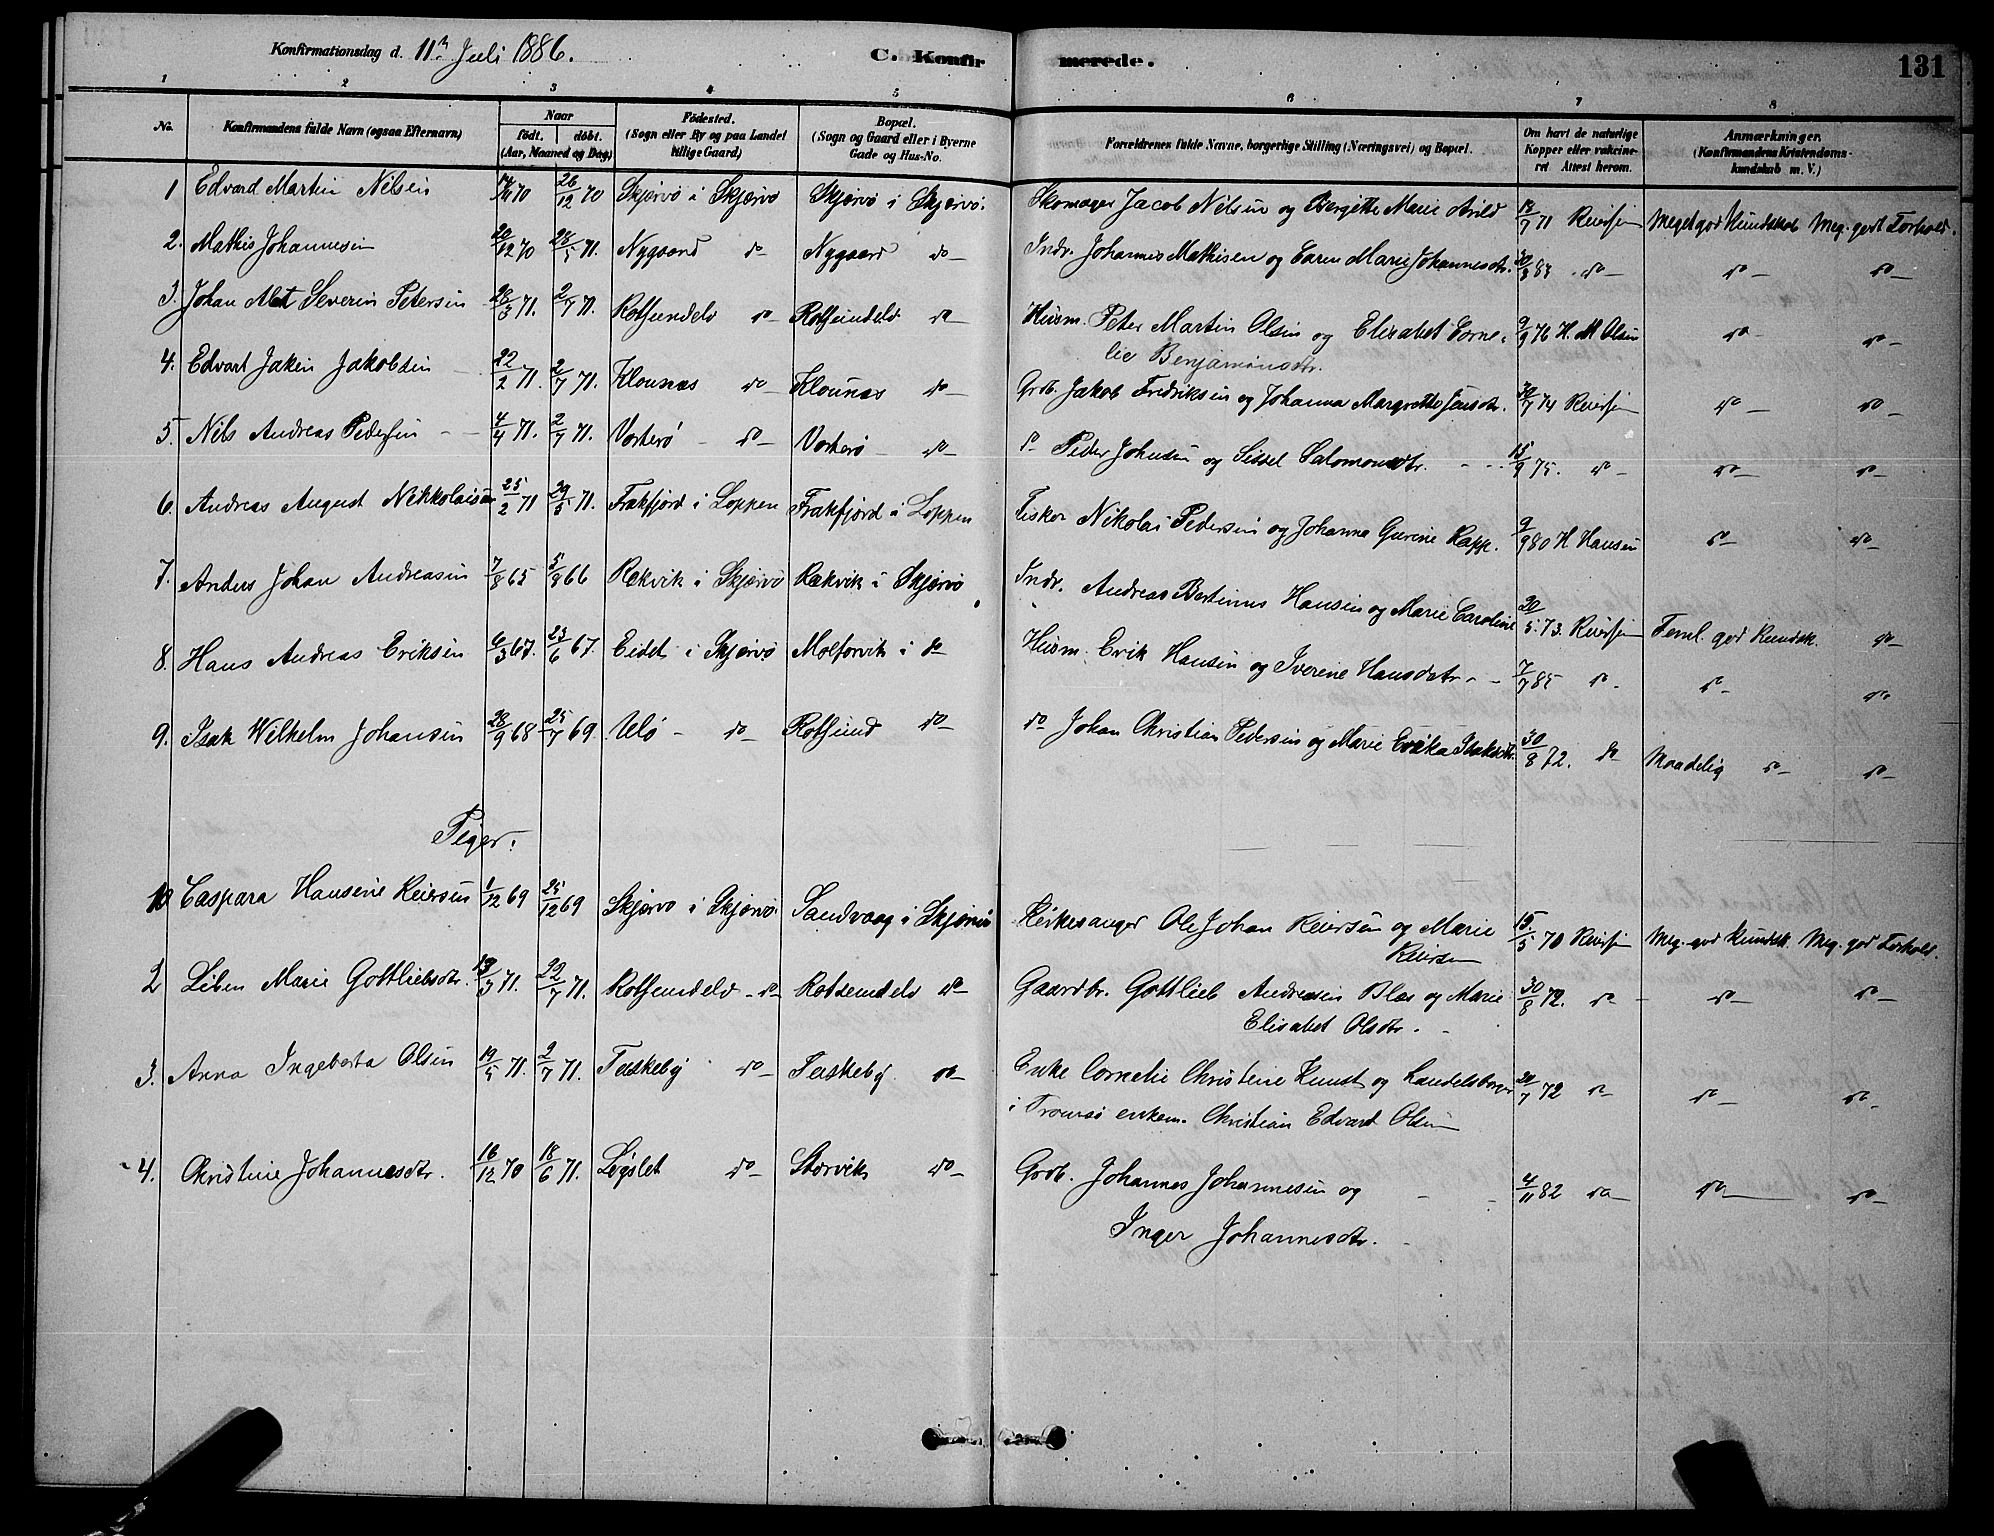 Konfirmationsdag d. 11te Juli 1886. C. Konfirmerede. 131
1 2 3 4 5 6 7 8
No. Konfirmandens fulde Navn (ogsaa Efternavn) Naar født. døbt. (Aar, Maaned og Dag) Fødested. (Sogn eller By og paa Landet tillige Gaard) Bopæl. (Sogn og Gaard eller i Byerne Gade og Hus-No. Forældrenes fulde Navne, borgerlige Stilling (Næringsvei) og Bopæl. Om havt de naturlige Kopper eller vakcineret Attest herom. Anmærkninger. (Konfirmandens Kristendomskundskab m. V.)
1 Edvard Martin Nilsen 70 26/12 70 Skjærvø i Skjærvø Skjærvø i Skjærvø. Skomager Jacob Nilsen og Bergitte Marie Arild 13/7 71 Reiersen Meget god Kundskab Meg. godt Forhold.
2. Mathis Johannesen 20/12 70 28/5 71. Nygaard do Nygaard do Indr. Johannes Mathisen og Caren Marie Johannesdtr. 83 do do do
3. Johan Severin Petersen 28/3 71. 2/7 71. Rotsundelv do Rotsundelv do Huusm. Peter Martin Olsen og Elisabet Corne-
lie Benjaminsdtr. 9/9 76 H. M Olsen do do
4. Edvart Jakin Jakobsen 22/2 71. 2/7 71. Klounæs do Klounæs do Grdb. Jakob Fredriksen og Johanna Margrethe Jensdtr. 30/7 74 Reiersen do do
5. Nils Andreas Pedersen 4/4 71. 2/7 71. Vorterø do Vorterø do do Peder Johnsen og Sissel Salomonsdtr. 15/9 75. do do do
6. Andreas August Nikkolaisen 25/2 71 29/5 71. Frakfjord i Loppen Frakfjord i Loppen Fisker Nikolai Pedersen og Johanna Gurine Rapp. 9/9 80 H Hansen do do
7. Anders Johan Andreasen 7/8 65 5/8 66 Rekvik i Skjærvø Rækvik i Skjærvø Indr. Andreas Bertinus Hansen og Marie Caroline 20/5 73. Reiersen Teml. god Kundsk. do
8. Hans Andreas Eriksen 6/3 67. 23/6 67. Eidet i Skjærvø Molforvik i do Huusm. Erik Hansen og Iverine Hansdatr 7/7 85 do do do
9. Isak Wilhelm Johansen 28/9 68 25/7 69. Ulø do Rotsund do do Johan Christian Pedersen og Marie Erika Isaksdtr. 30/8 72. do Maadelig do do
Piger.
10 Caspara Hansine Reiersen 1/12 69 25/12 69 Skjærvø i Skjærvø Sandvaag i Skjærvø Kirkesanger Ole Johan Reiersen og Marie
Reiersen 15/5 70 Reiersen Meg. god Kundsk. Meg. god Forhold.
2 Liben Marie Gottliebsdtr. 71. 22/7 71. Rotsundelv do Rotsundelv do Gaardbr. Gottlieb Andreasen Blæs og Marie
Elisabet Olsdtr. 30/8 72. do do do
3. Anna Ingeborta Olsen 19/5 71. 2/7 71. Taskeby do Taskeby do Enke Cornelie Christine Kunst og Handelsborger
i Tromsø enkem. Christian Edvard Olsen 20/7 72 do do do
4. Christine Johannesdtr. 16/12 70 18/6 71. Løgslet do Storvik do Grdb. Johannes Johannesen og
Inger Johannesdtr. 4/11 82 do do do